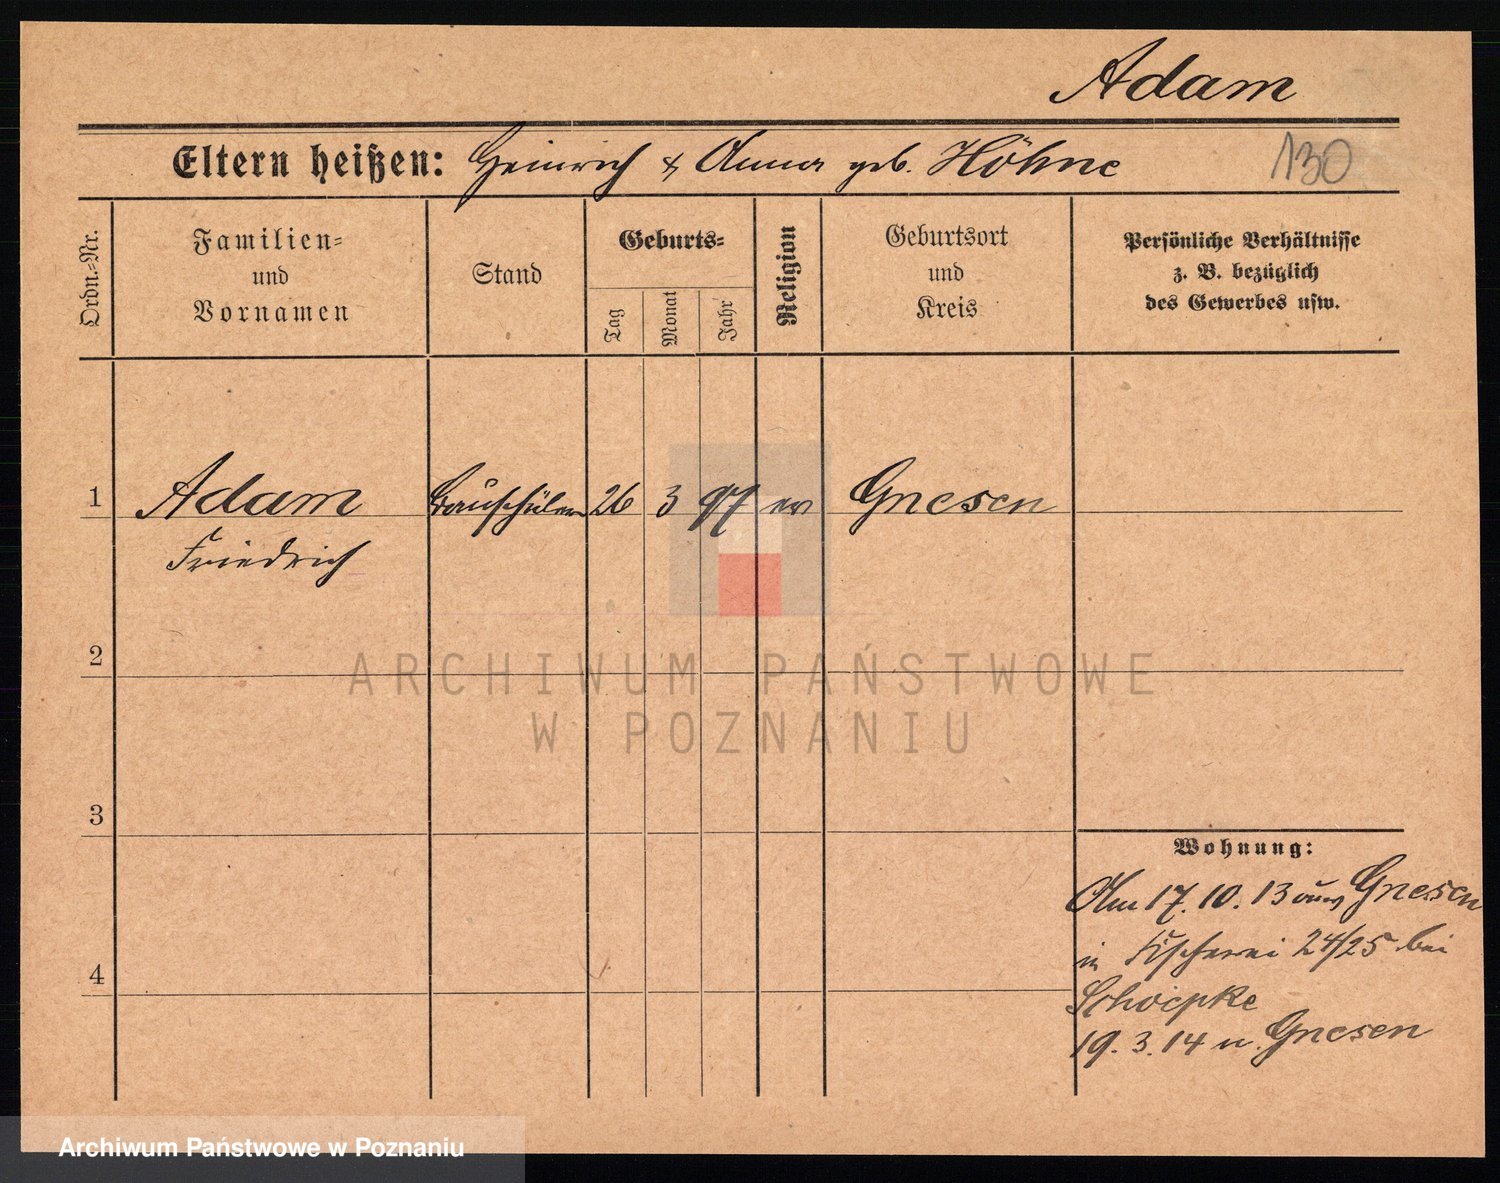 Adam
Eltern heißen: Heinrich & Anna geb. Höhne
130
Ordn.-Nr.
Familien-
und
Vornamen
Stand
Geburts-
Tag
Monat
Jahr
Religion
Geburtsort
und
Kreis
Persönliche Verhältnisse
z. B. bezüglich
des Gewerbes usw.
1
Adam
Friedrich
Bauschüler
26
3
97
ev
Gnesen
2
3
4
Wohnung:
Am 17.10.13 aus Gnesen
in Fischerei 24/25 bei
Schoepke
19.3.14 n. Gnesen
ARCHIWUM PAŃSTWOWE
W POZNANIU
Archiwum Państwowe w Poznaniu